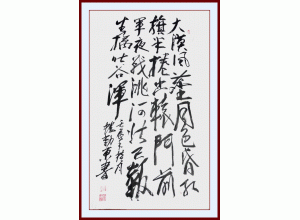 大漠風塵日色昏紅
旗半捲出轅門前
軍夜戰洮河北已報
生擒吐谷渾